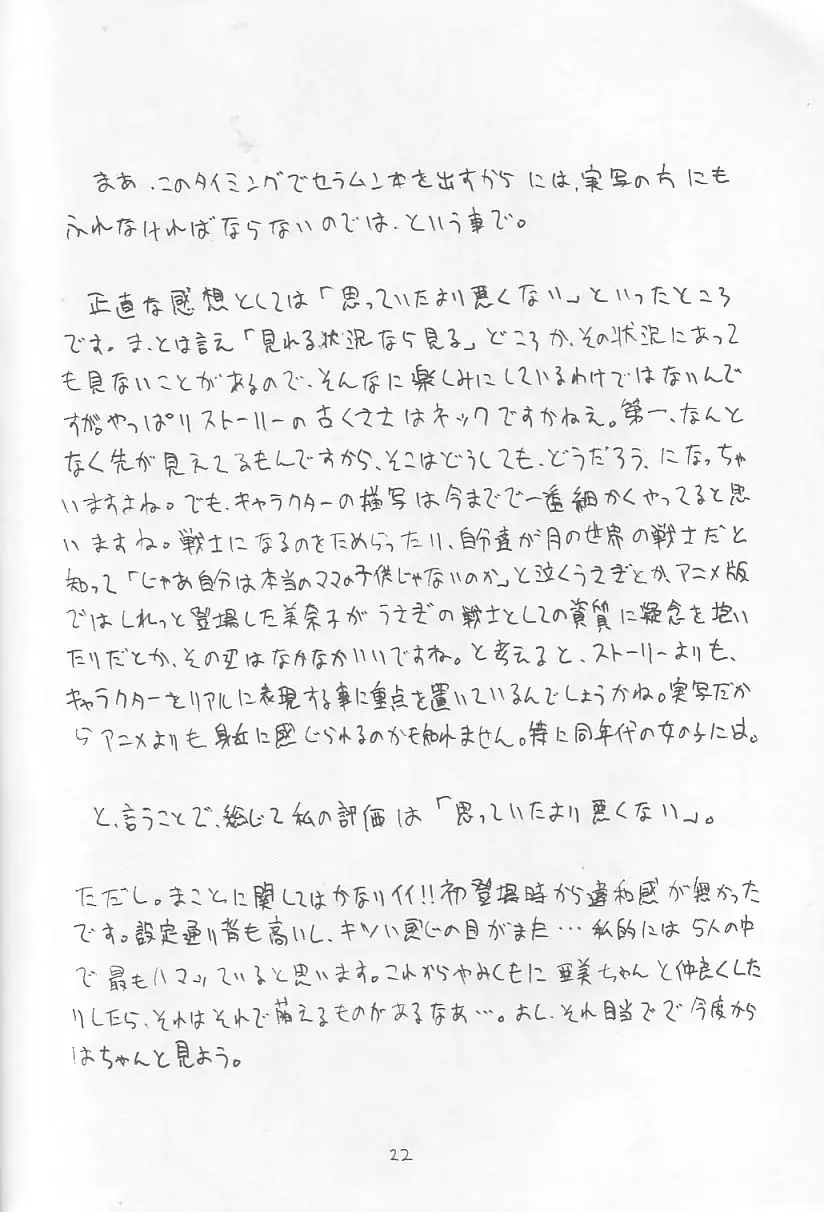 まあ、このタイミングでセラムン本を出すからには、実写の方にも
ふれなければならないのでは、という事で。
正直な感想としては「思っていたより悪くない」といったところ
です。ま、とは言え「見れる状況なら見る」どころか、その状況にあって
も見ないことがあるので、そんなに楽しみにしているわけではないんで
すが。やっぱりストーリーの古くささはネックですかねえ。第一、なんと
なく先が見えてるもんですから、そこはどうしても、どうだろう、になっちゃ
いますよね。でも、キャラクターの描写は今までで一番細かくやってると思
いますね。戦士になるのをためらったり、自分達が月の世界の戦士だと
知って「じゃあ自分は本当のママの子供じゃないのか」と泣くうさぎとか、アニメ版
ではしれっと登場した美奈子がうさぎの戦士としての資質に疑念を抱い
たりだとか、その辺はなかなかいいですね。と考えると、ストーリーよりも、
キャラクターをリアルに表現する事に重点を置いているんでしょうかね。実写だか
らアニメよりも身近に感じられるのかも知れません。特に同年代の女の子には。
と、言うことで、総じて私の評価は「思っていたより悪くない」。
ただし。まことに関してはかなりイイ!!初登場時から違和感が無かった
です。設定通り背も高いし、キツい感じの目がまた…私的には5人の中
で最もハマっていると思います。これからやみくもに亜美ちゃんと仲良くした
りしたら、それはそれで萌えるものがあるなあ…。おし、それ目当てで今度から
はちゃんと見よう。
22